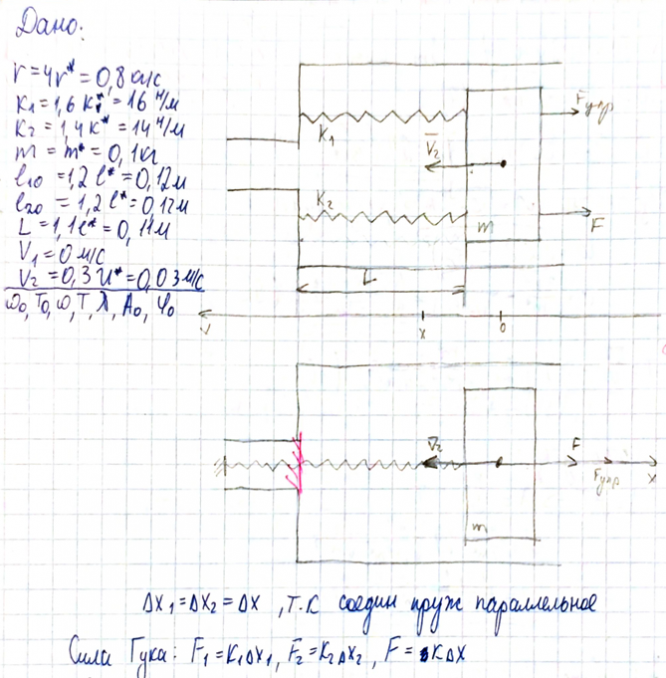 Дано:
r=4r*=0,8 кг/с
K1=1,6 K*=16 н/м
K2=1,4 K*=14 н/м
m=m*=0,1кг
l10=1,2 l*=0,12м
l20=1,2 l*=0,12м
L=1,1 l*=0,11м
V1=0 м/с
V2=0,3 U*=0,03 м/с
ω0, T0, ω, T, λ, A0, φ0
K1
Fупр
V2
K2
m
F
L
V
x
0
V2
F
Fупр
x
m
Δx1=Δx2=Δx , т.к соедин пруж параллельное
Сила Гука: F1=K1Δx1, F2=K2Δx2, F=KΔx